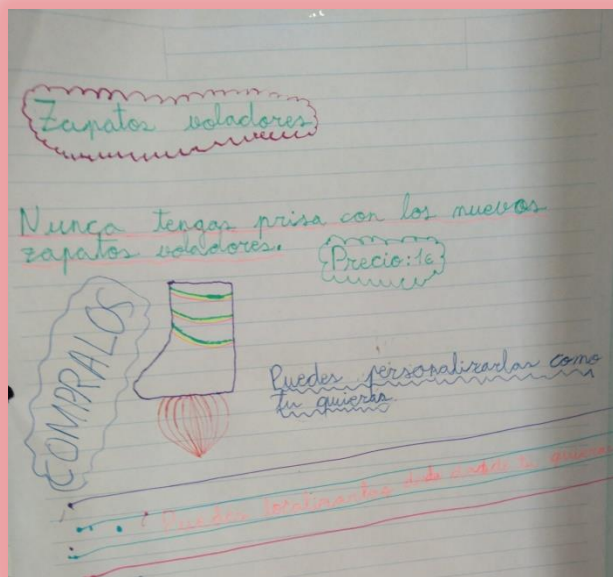 Zapatos voladores
Nunca tengas prisa con los nuevos
zapatos voladores.
Precio: 1€
COMPRALOS
Puedes personalizarlas como
tu quieras.
Puedes